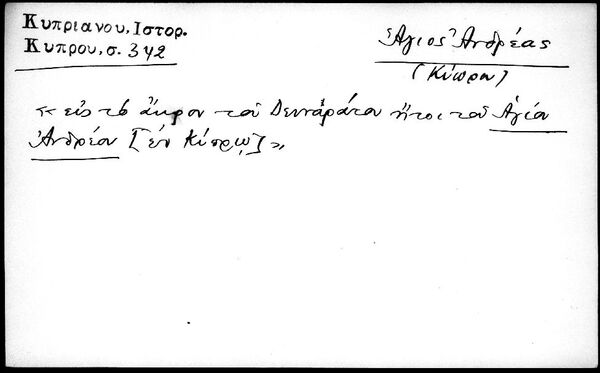 Κυπριανου, Ιστορ.
Κυπρου, σ. 342
Ἅγιος Ἀνδρέας
(Κύπρου)
« εἰς τὸ ἄκρον τοῦ Δειναράτου ἤτοι τοῦ Ἁγίου
Ἀνδρέου [ἐν Κύπρῳ] »